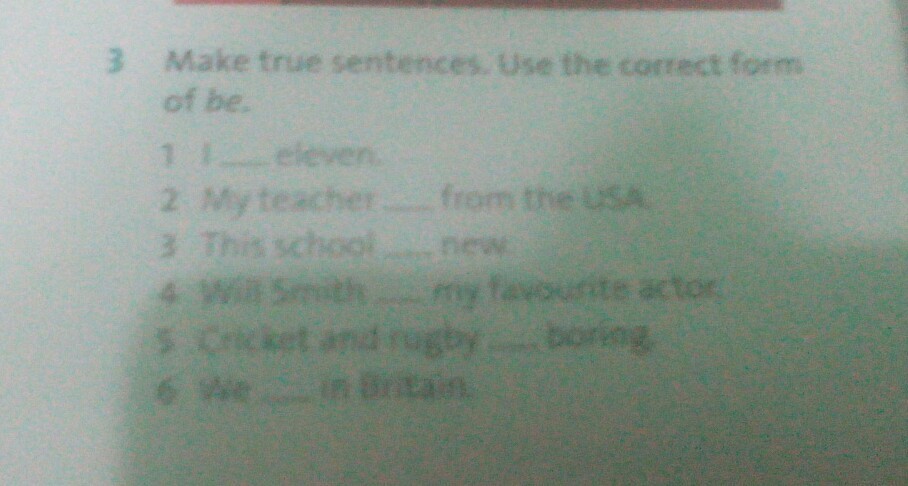 3 Make true sentences. Use the correct form
of be.
1 I ___ eleven.
2 My teacher ___ from the USA.
3 This school ___ new.
4 Will Smith ___ my favourite actor.
5 Cricket and rugby ___ boring.
6 We ___ in Britain.